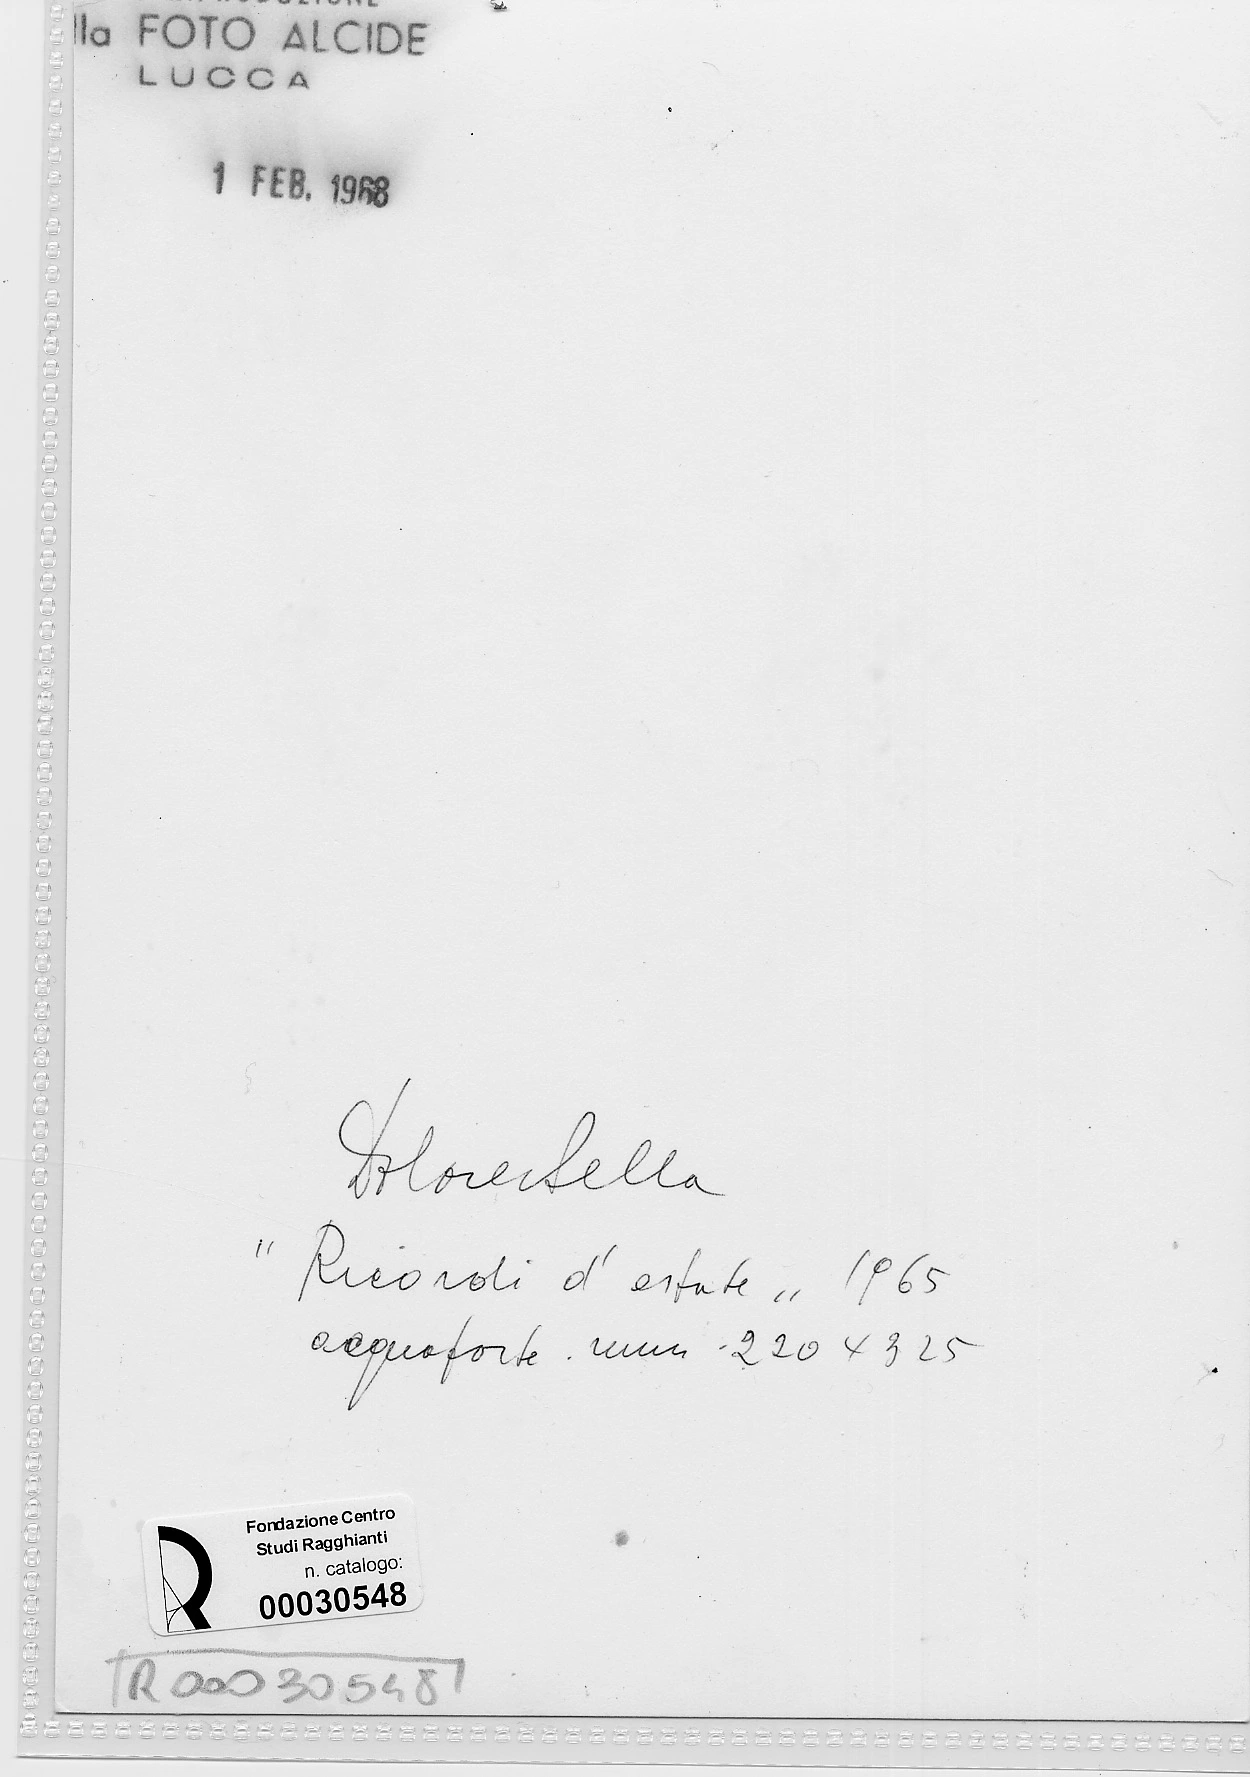 lla FOTO ALCIDE
LUCCA
1 FEB. 1968
Dolores Sella
" Ricordi d'estate „ 1965
acquaforte. mm. 220 x 325
Fondazione Centro
Studi Ragghianti
n. catalogo:
00030548
R 00030548